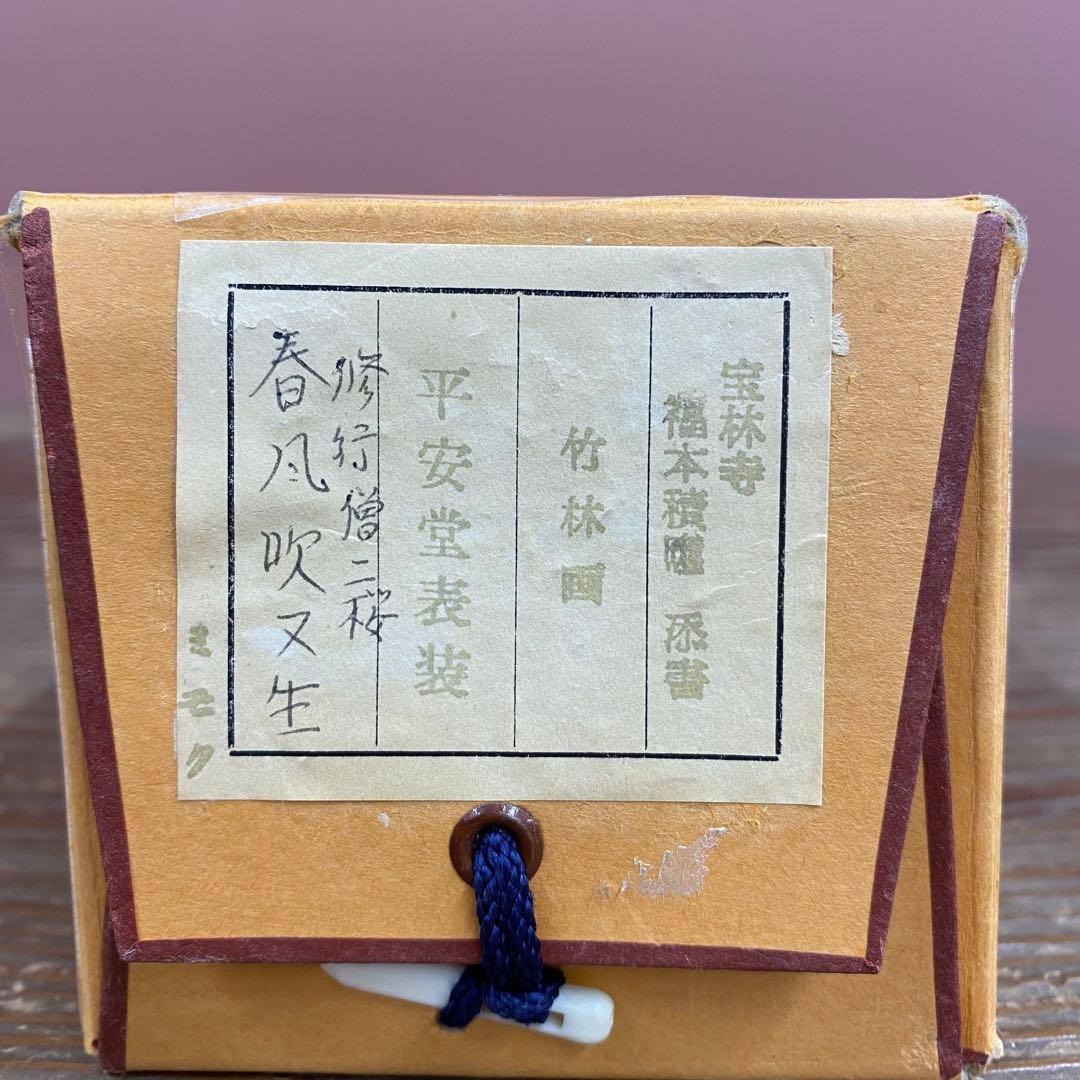 宝林寺
福本積應 添書
竹林画
平安堂表装
修行僧二桜
春風吹又生
きモク